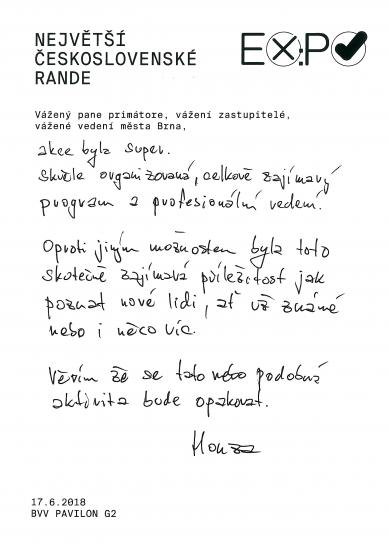 NEJVĚTŠÍ
ČESKOSLOVENSKÉ
RANDE
EX:PO
Vážený pane primátore, vážení zastupitelé,
vážené vedení města Brna,
akce byla super.
Skvěle organizovaná, celkově zajímavý
program a profesionální vedení.
Oproti jiným možnostem byla toto
skutečně zajímavá příležitost jak
poznat nové lidi, ať už známé
nebo i něco víc.
Věřím že se tato nebo podobná
aktivita bude opakovat.
Honza
17.6.2018
BVV PAVILON G2